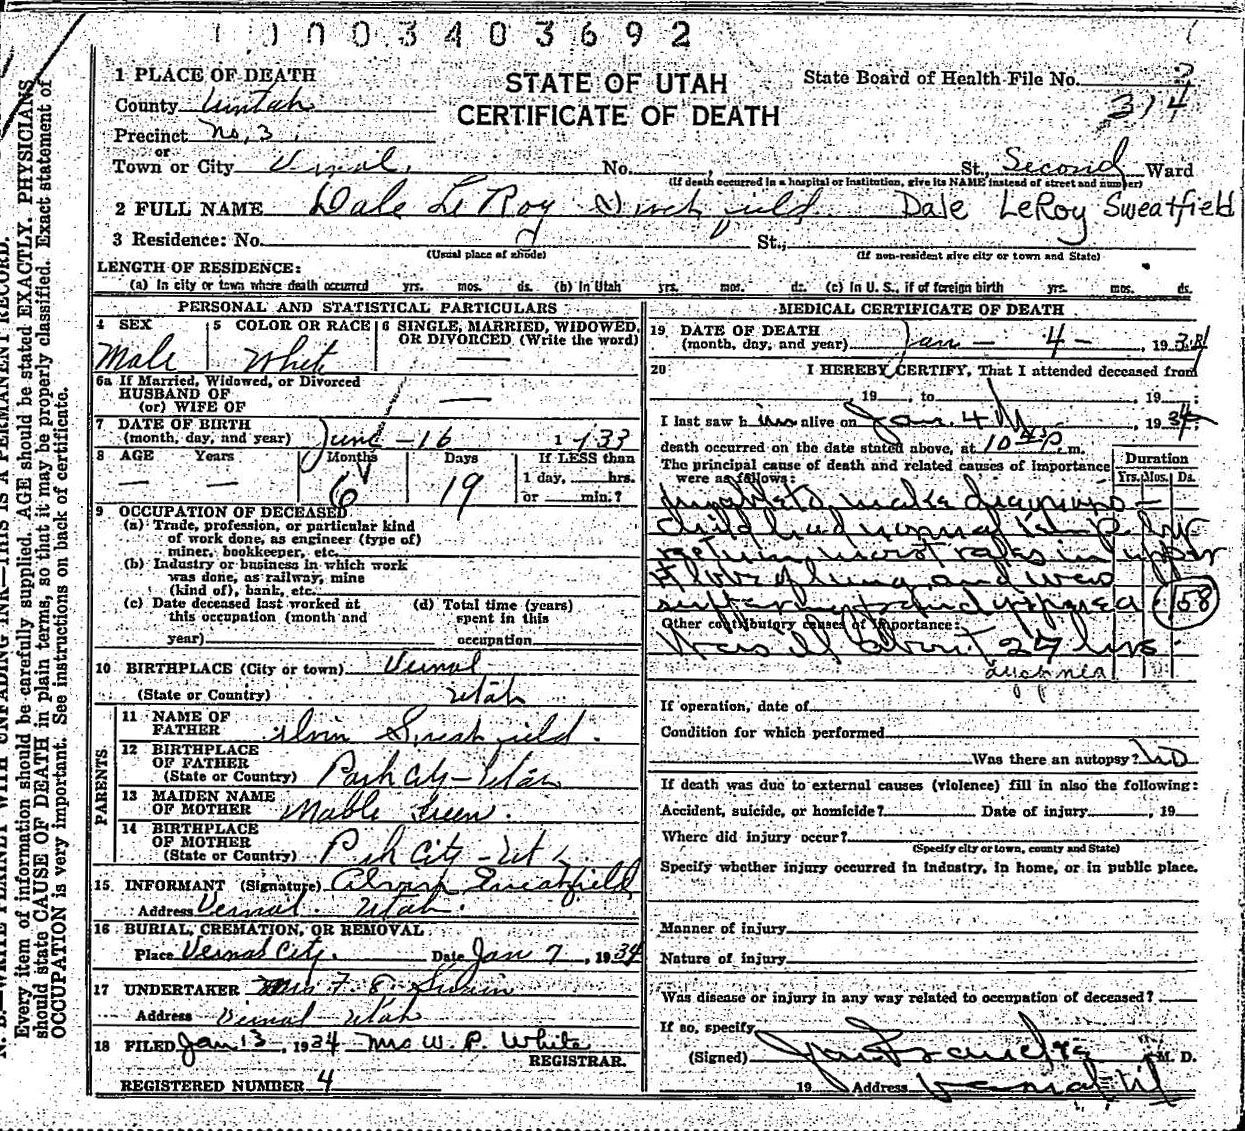 1 0 0 0 3 4 0 3 6 9 2
STATE OF UTAH
CERTIFICATE OF DEATH
State Board of Health File No. 7
314
1 PLACE OF DEATH
County Uintah
Precinct No. 3
or
Town or City Vernal. No. , St., Second Ward
(If death occurred in a hospital or institution, give its NAME instead of street and number)
2 FULL NAME Dale LeRoy Sweatfield Dale LeRoy Sweatfield
3 Residence: No. St.,
(Usual place of abode) (If non-resident give city or town and State)
LENGTH OF RESIDENCE:
(a) In city or town where death occurred yrs. mos. ds. (b) In Utah yrs. mos. ds. (c) In U. S., if of foreign birth yrs. mos. ds.
PERSONAL AND STATISTICAL PARTICULARS
4 SEX
Male
5 COLOR OR RACE
White
6 SINGLE, MARRIED, WIDOWED,
OR DIVORCED (Write the word)
6a If Married, Widowed, or Divorced
HUSBAND OF
(or) WIFE OF
7 DATE OF BIRTH
(month, day, and year) June - 16 1933
8 AGE Years Months Days If LESS than
— — 6 19 1 day, hrs.
or min.?
9 OCCUPATION OF DECEASED
(a) Trade, profession, or particular kind
of work done, as engineer (type of)
miner, bookkeeper, etc.
(b) Industry or business in which work
was done, as railway, mine
(kind of), bank, etc.
(c) Date deceased last worked at
this occupation (month and
year)
(d) Total time (years)
spent in this
occupation
10 BIRTHPLACE (City or town) Vernal
(State or Country) Utah
PARENTS
11 NAME OF
FATHER Alvin Sweatfield.
12 BIRTHPLACE
OF FATHER
(State or Country) Park City - Utah
13 MAIDEN NAME
OF MOTHER Mable Green.
14 BIRTHPLACE
OF MOTHER
(State or Country) Park City - Ut
15 INFORMANT (Signature) Sweatfield
Address Vernal. Utah.
16 BURIAL, CREMATION, OR REMOVAL
Place Vernal City. Date Jan 7, 1934
17 UNDERTAKER Mrs F. E. Swain
Address Vernal Utah
18 FILED Jan 13, 1934 Mrs W. P. White
REGISTRAR.
REGISTERED NUMBER 4
MEDICAL CERTIFICATE OF DEATH
19 DATE OF DEATH
(month, day, and year) Jan - 4 - , 1934
20 I HEREBY CERTIFY, That I attended deceased from
, 19 , to , 19 :
I last saw him alive on Jan. 4, 1934:
death occurred on the date stated above, at 10 p. m.
The principal cause of death and related causes of importance
were as follows:
Duration
Yrs. Mos. Ds.
unable to make diagnosis -
child had normal
moist rales in upper
lobe of lung and was
suffering 158
Other contributory causes of importance:
Was ill about 24 hrs.
If operation, date of
Condition for which performed
Was there an autopsy? No
If death was due to external causes (violence) fill in also the following:
Accident, suicide, or homicide? Date of injury , 19
Where did injury occur?
(Specify city or town, county and State)
Specify whether injury occurred in industry, in home, or in public place.
Manner of injury
Nature of injury
Was disease or injury in any way related to occupation of deceased?
If so, specify
(Signed) M. D.
19 Address Vernal Ut
N. B.—WRITE PLAINLY WITH UNFADING INK—THIS IS A PERMANENT RECORD.
Every item of information should be carefully supplied. AGE should be stated EXACTLY. PHYSICIANS
should state CAUSE OF DEATH in plain terms, so that it may be properly classified. Exact statement of
OCCUPATION is very important. See instructions on back of certificate.